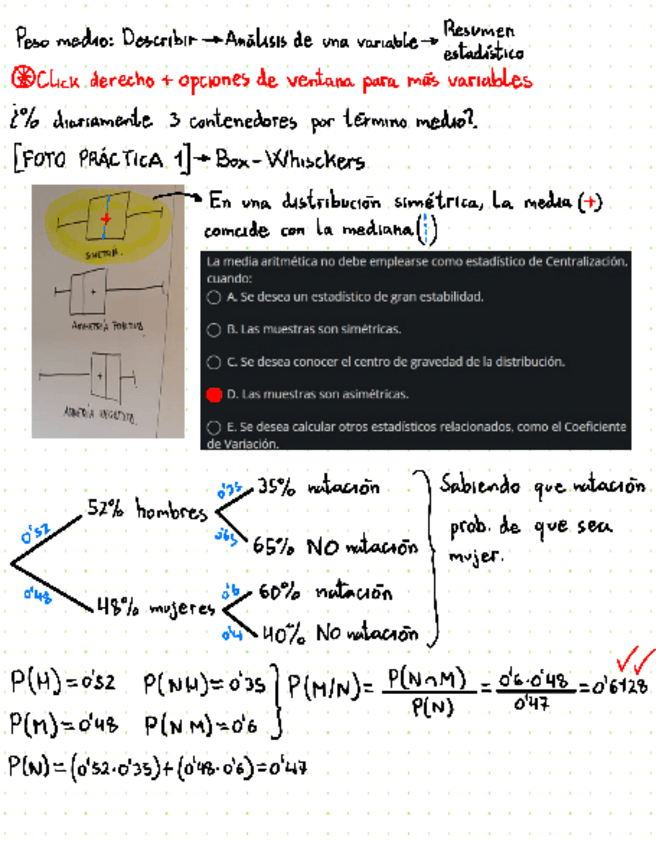 Peso medio: Describir → Análisis de una variable → Resumen estadístico
* Click derecho + opciones de ventana para más variables
¿% diariamente 3 contenedores por término medio?.
[FOTO PRÁCTICA 1] → Box-Whisckers
→ En una distribución simétrica, la media (+)
coincide con la mediana (¦)
SIMETRÍA.
ASIMETRÍA POSITIVA
ASIMETRÍA NEGATIVA.
La media aritmética no debe emplearse como estadístico de Centralización,
cuando:
A. Se desea un estadístico de gran estabilidad.
B. Las muestras son simétricas.
C. Se desea conocer el centro de gravedad de la distribución.
D. Las muestras son asimétricas.
E. Se desea calcular otros estadísticos relacionados, como el Coeficiente
de Variación.
0'52 52% hombres
0'35 35% natación
0'65 65% NO natación
0'48 48% mujeres
0'6 60% natación
0'4 40% No natación
Sabiendo que natación
prob. de que sea
mujer.
P(H)=0'52 P(NH)=0'35 P(M/N)= P(N∩M) / P(N) = 0'6·0'48 / 0'47 =0'6128
P(M)=0'48 P(NM)=0'6
P(N)=(0'52·0'35)+(0'48·0'6)=0'47